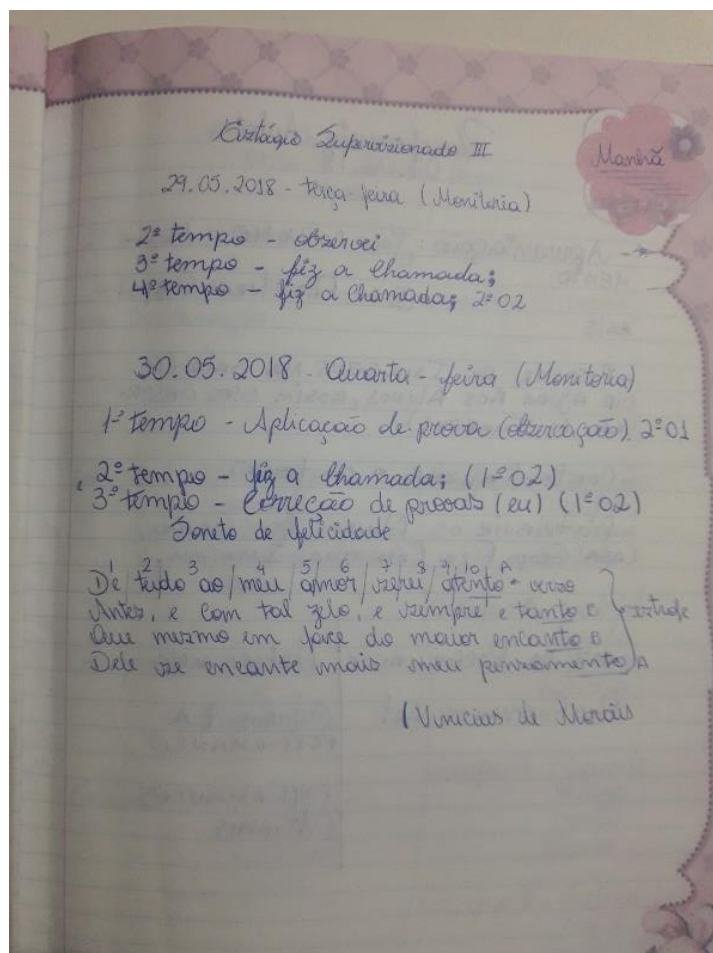 Estágio Supervisionado III
Manhã
29.05.2018 - terça-feira (Monitoria)
2º tempo - observei
3º tempo - fiz a chamada;
4º tempo - fiz a chamada; 2º 02
30.05.2018 - Quarta-feira (Monitoria)
1º tempo - Aplicação de prova (observação). 2º 01
2º tempo - fiz a chamada; (1º 02)
3º tempo - Correção de provas (eu) (1º 02)
Soneto de felicidade
1 2 3 4 5 6 7 8 9 10 A
De/tudo ao/meu/amor/serei/atento - verso
Antes, e com tal zelo, e sempre e tanto B
Que mesmo em face do maior encanto B estrofe
Dele se encante mais meu pensamento A
(Vinicius de Morais